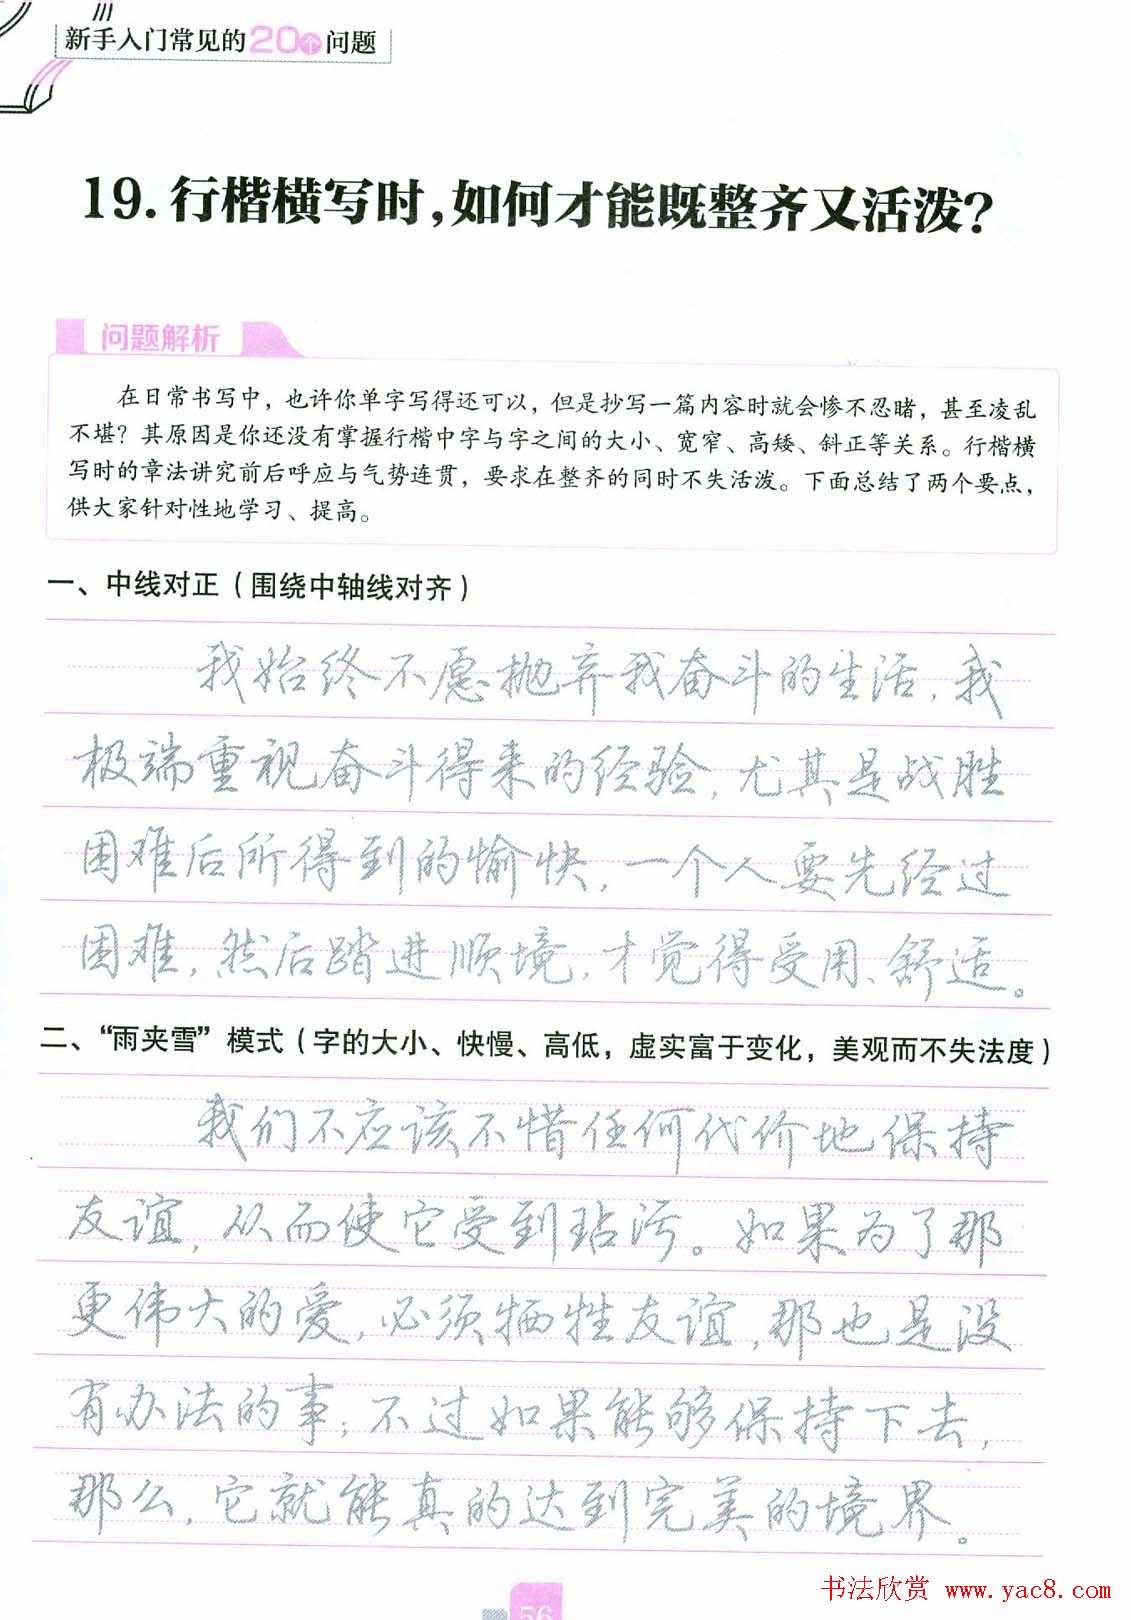 新手入门常见的20个问题
19.行楷横写时,如何才能既整齐又活泼?
问题解析
在日常书写中，也许你单字写得还可以，但是抄写一篇内容时就会惨不忍睹，甚至凌乱
不堪？其原因是你还没有掌握行楷中字与字之间的大小、宽窄、高矮、斜正等关系。行楷横
写时的章法讲究前后呼应与气势连贯，要求在整齐的同时不失活泼。下面总结了两个要点，
供大家针对性地学习、提高。
一、中线对正（围绕中轴线对齐）
我始终不愿抛弃我奋斗的生活，我
极端重视奋斗得来的经验，尤其是战胜
困难后所得到的愉快，一个人要先经过
困难，然后踏进顺境，才觉得受用、舒适。
二、“雨夹雪”模式（字的大小、快慢、高低，虚实富于变化，美观而不失法度）
我们不应该不惜任何代价地保持
友谊，从而使它受到玷污。如果为了那
更伟大的爱，必须牺牲友谊，那也是没
有办法的事；不过如果能够保持下去，
那么，它就能真的达到完美的境界。
56
书法欣赏 www.yac8.com